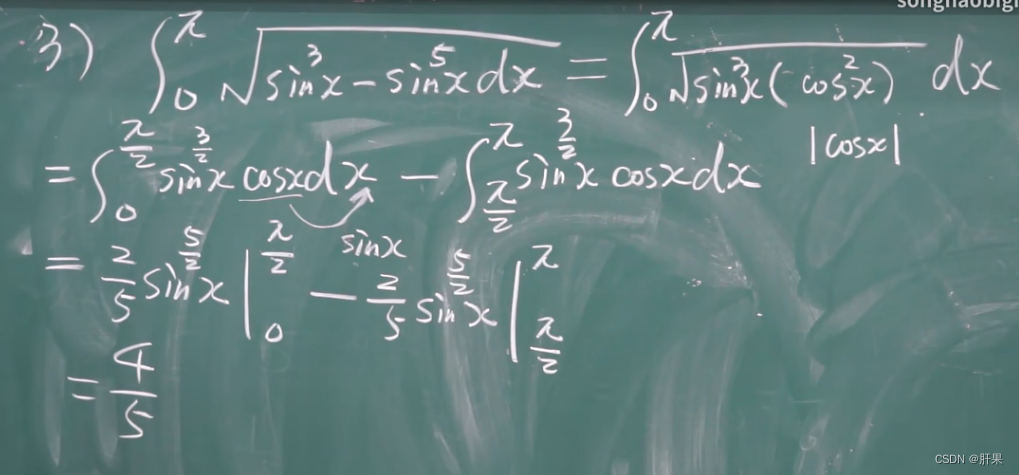 songhaobigi
3) ∫₀^π √(sin³x − sin⁵x dx) = ∫₀^π √(sin³x (cos²x)) dx
= ∫₀^(π/2) sin^(3/2)x cosx dx − ∫_(π/2)^π sin^(3/2)x cosx dx |cosx|
sinx
= 2/5 sin^(5/2)x |₀^(π/2) − 2/5 sin^(5/2)x |_(π/2)^π
= 4/5
CSDN @肝果